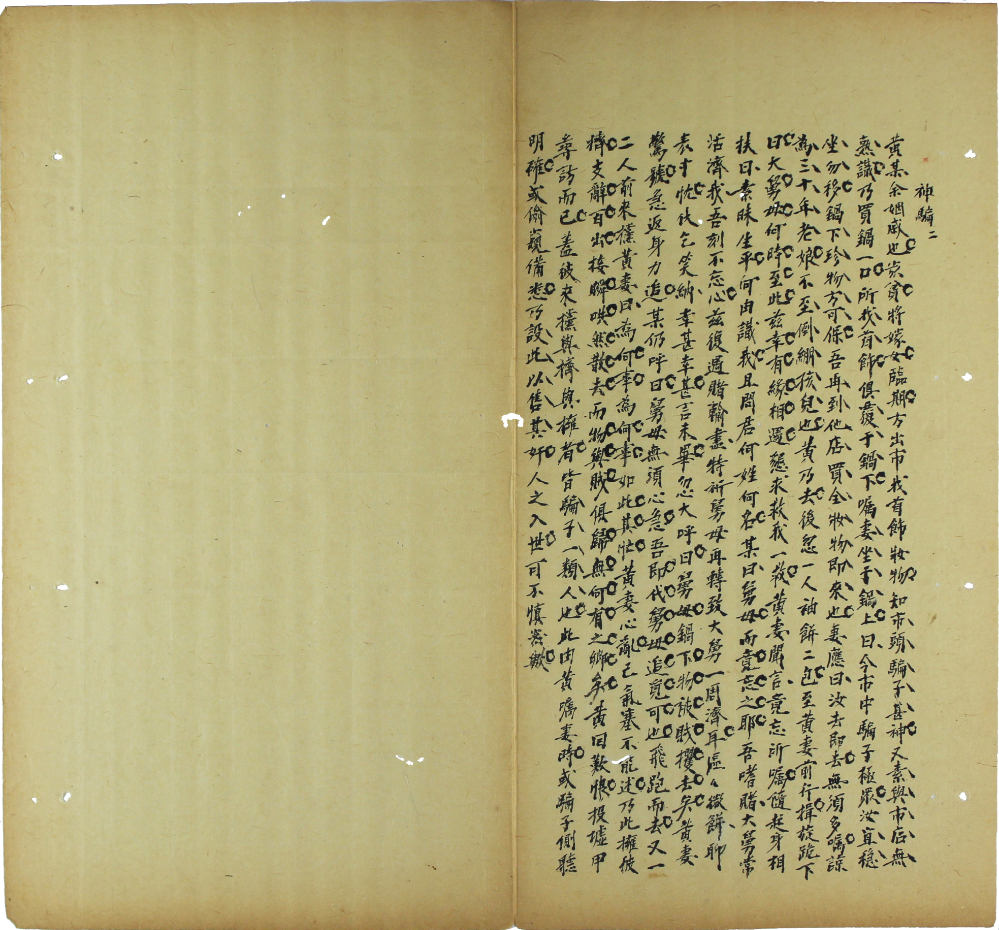 神騙二
黄某余姻戚也京賃將嫁女臨期方出市找首飾妝物知市頭騙子甚神又素與市店無
熟識乃買鍋一口所找首飾俱覆于鍋下嘱妻坐于鍋上曰今市中騙子極衆汝宜穩
坐勿移鍋下珍物方可保吾再到他店買全妝物即來也妻應曰汝去即去無須多嘱諒
為三十年老娘不至倒綳孩兒也黄乃去後忽一人袖餅二包至黄妻前行揖旋跪下
曰大舅母何時至此兹幸有緣相遇懇求救我一救黄妻聞言竟忘所嘱隨起身相
扶曰素昧生平何由識我且問君何姓何名某曰舅母而竟忘之耶吾嗜賭大舅常
活濟我吾刻不忘心兹復過賭輸盡特祈舅母再轉致大舅一周濟耳區々微餅聊
表寸忱伏乞笑納幸甚幸甚言未畢忽大呼曰舅母鍋下物被賊攫去矣黄妻
驚號急返身力追某仍呼曰舅母無須心急吾即代舅母追覓可也飛跑而去又一
二人前來攩黄妻曰為何事為何事如此其忙黄妻心亂已氣塞不能述乃此擁彼
擠支辭百出接瞬哄然散去而物與賊人俱歸無何有之鄉矣黄回歎恨投墟甲
尋訪而已蓋彼來攩與擠與擁者皆騙子一類人也此由黄嘱妻時或騙子側聽
明確或偷窺備悉乃設此以售其奸人之入世可不慎密歟